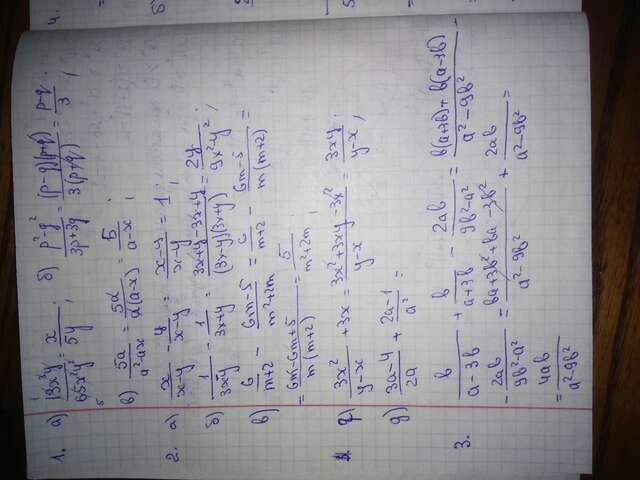 1. а) 13x²y/65x²y² = x/5y ; б) p²-q²/3p+3q = (p-q)(p+q)/3(p+q) = p-q/3 ;
в) 5a/a²-ax = 5a/a(a-x) = 5/a-x ;
2. а) x/x-y - y/x-y = x-y/x-y = 1 ;
б) 1/3x-y - 1/3x+y = 3x+y-3x+y/(3x-y)(3x+y) = 2y/9x²-y² ;
в) 6/m+2 - 6m-5/m²+2m = 6/m+2 - 6m-5/m(m+2) =
= 6m-6m+5/m(m+2) = 5/m²+2m ;
г) 3x²/y-x + 3x = 3x²+3xy-3x²/y-x = 3xy/y-x ;
д) 3a-4/2a + 2a-1/a² =
3. b/a-3b + b/a+3b - 2ab/9b²-a² = b(a+b)+b(a-3b)/a²-9b² -
- 2ab/9b²-a² = ba+3b²+ba-3b²/a²-9b² + 2ab/a²-9b² =
= 4ab/a²-9b²
4.